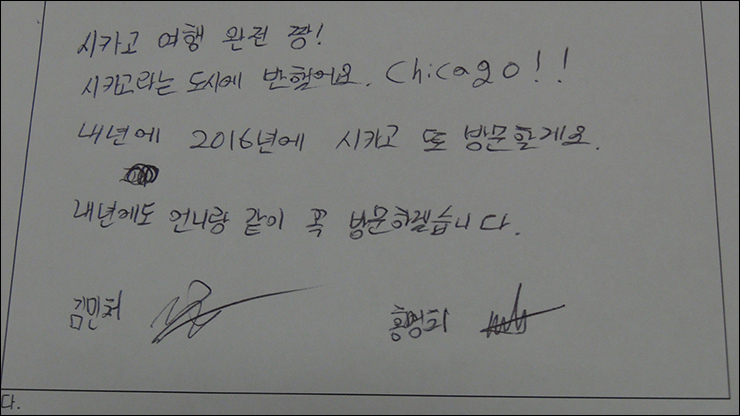 시카고 여행 완전 짱!
시카고라는 도시에 반했어요. Chicago!!
내년에 2016년에 시카고 또 방문할게요.
내년에도 언니랑 같이 꼭 방문하겠습니다.
다.